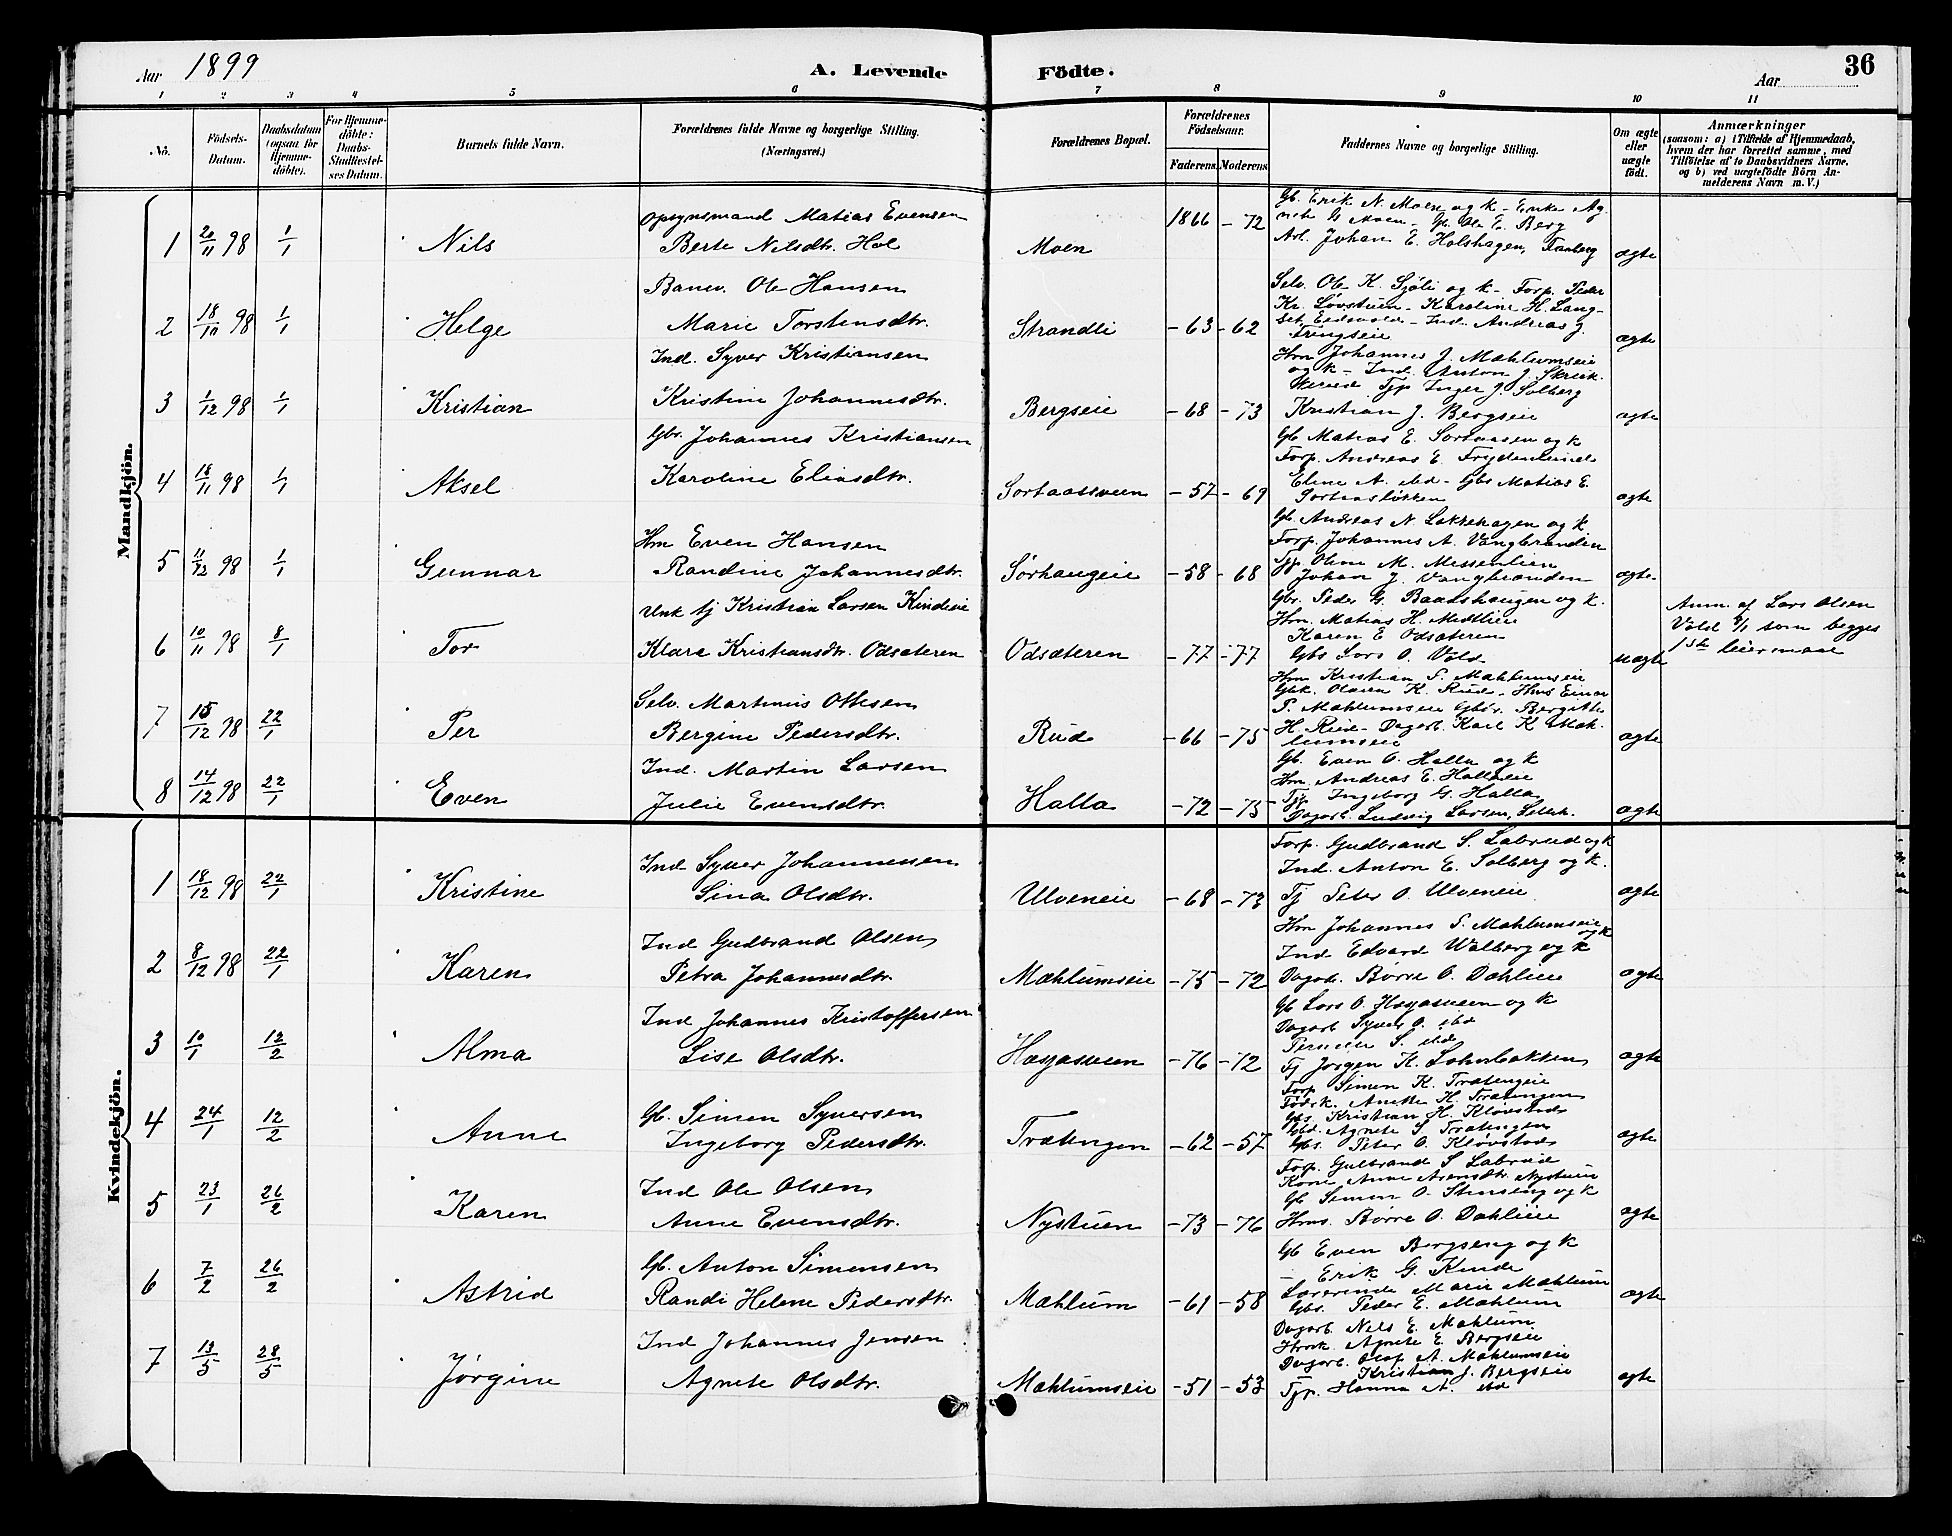 Aar 1899
A. Levende Födte.
Aar
36
1 2 3 4 5 6 7 8 9 10 11
Nö.
Födsels-Datum.
Daabsdatum (ogsaa for Hjemmedöbte).
For Hjemmedöbte: Daabs-Stadfestelses Datum.
Barnets fulde Navn.
Forældrenes fulde Navne og borgerlige Stilling.
(Næringsvei.)
Forældrenes Bopæl.
Forældrenes Födselsaar.
Faderens. Moderens.
Faddernes Navne og borgerlige Stilling.
Om ægte eller uægte födt.
Anmærkninger
(saasom: a) i Tilfælde af Hjemmedaab, hvem der har forrettet samme, med Tilföielse af to Daabsvidners Navne, og b) ved uægtefödte Börn Anmelderens Navn m. V.)
Mandkjön.
1 20/11 98 1/1 Nils
Opsynsmand Matias Evensen
Berte Nilsdtr. Hol
Moen 1866 - 72
Gb. Erik N. Moen og k - Enke Ag-
nete G Moen - Gb. Ole E. Berg
Arb. Johan E. Holshagen, Faaberg
ægte
2 18/10 98 1/1 Helge
Banev. Ole Hansen
Marie Torstensdtr.
Strandli - 63 - 62
Selv. Ole K. Sjøli og k - Forp. Peder
Kr. Løvstuen - Karoline H. Lang-
set, Eidsvold - Ind. Andreas J.
Tringseie
ægte
3 1/12 98 1/1 Kristian
Ind. Syver Kristiansen
Kristine Johannesdtr.
Bergseie - 68 - 73
Hm Johannes J. Mæhlumseie
og k - Ind. Anton J. Skreik-
Tjp Inger J. Solberg
Kristian J. Bergseie
ægte
4 16/11 98 1/1 Aksel
Gbr. Johannes Kristiansen
Karoline Eliasdtr.
Sortaasveen - 57 - 69
Gb Matias E. Sortaasen og k
Forp. Andreas E. Frydenlund
Eline A. ibd - Gbs Matias E.
Sortaasløkken
ægte
5 11/12 98 1/1 Gunnar
Hm Even Hansen
Randine Johannesdtr.
Sørhaugeie - 58 - 68
Gb. Andreas N. Lakkehagen og k
Forp. Johannes A. Vangbranden
Tjp. Oline M. Messenlien
Johan J. Vangbranden
ægte
6 10/11 98 8/1 Tor
Unk tj Kristian Larsen Kindeie
Klara Kristiansdtr. Odsæteren
Odsæteren - 77 - 77
Gbr. Peder G. Baadshaugen og k.
Hm. Matias H. Midtlieie
Karen E Odsæteren
Gbs Lars O. Vold
uægte
Anm. af Lars Olsen
Vold 8/1 som begges
1ste leiermaal
7 15/12 98 22/1 Per
Selv. Martinus Ottesen
Bergine Pedersdtr.
Rud - 66 - 75
Hm Kristian P. Mæhlumseie
Gbk. Olava K. Rud - Hms Einar
P. Mæhlumseie Gbdr. Bergitte
H. Rud - Dagarb. Karl K Mæh-
lumseie
ægte
8 14/12 98 22/1 Even
Ind. Martin Larsen
Julie Evensdtr.
Halla - 72 - 75
Gb. Even O. Halla og k
Hm. Andreas E. Hallaeie
Tjp. Ingeborg G. Halla
Dagarb. Ludvig Larsen, Lilleh.
ægte
Kvindekjön.
1 18/12 98 22/1 Kristine
Ind Syver Johannessen
Sina Olsdtr.
Ulveneie - 68 - 73
Forp. Gudbrand S. Labrud og k
Ind. Anton E. Solberg og k.
Tj Peter O. Ulveneie
ægte
2 8/12 98 22/1 Karen
Ind Gudbrand Olsen
Petra Johannesdtr.
Mæhlumseie - 75 - 72
Hm Johannes P. Mæhlumseie
og k
Ind Edvard Walberg og k
Dagarb. Børre O. Dahlieie
ægte
3 10/1 12/2 Alma
Ind Johannes Kristoffersen
Lise Olsdtr.
Hagasveen - 76 - 72
Gb Lars O. Hagasveen og k
Dagarb Syver O. ibd
Pernille S. ibd
Tj Jørgen K. Lohnbakken
ægte
4 24/1 12/2 Anne
Gb. Simen Syversen
Ingeborg Pedersdtr.
Trætengen - 62 - 57
Forp. Simen K. Trætengeie
Føderk. Anette H. Trætengen
Gbs. Kristian H. Kløvstad
Gbd. Agnete S Trætengen
Gbs. Peter O. Kløvstad
ægte
5 23/1 26/2 Karen
Ind Ole Olsen
Anne Evensdtr.
Nystuen - 73 - 76
Forp. Gulbrand S Labrud
Kone Anne Arensdtr. Nystuen
Gb Simen O. Stenseng og k
Hms. Børre O. Dahlieie
ægte
6 7/2 26/2 Astrid
Gb. Anton Simensen
Randi Helene Pedersdtr.
Mæhlum - 61 - 58
Gb Even Bergseng og k
- Erik G. Kinde
Lærerinde Marie Mæhlum
Gbs. Peder E. Mæhlum
ægte
7 13/5 28/5 Jørgine
Ind Johannes Jensen
Agnete Olsdtr.
Mæhlumseie - 51 - 53
Dagarb. Nils E. Mæhlum
Hmk. Agnete E. Bergseie
Dagarb. Olaf A. Mæhlumseie
Kristian J. Bergseie
Tjp. Hanna A. ibd
ægte